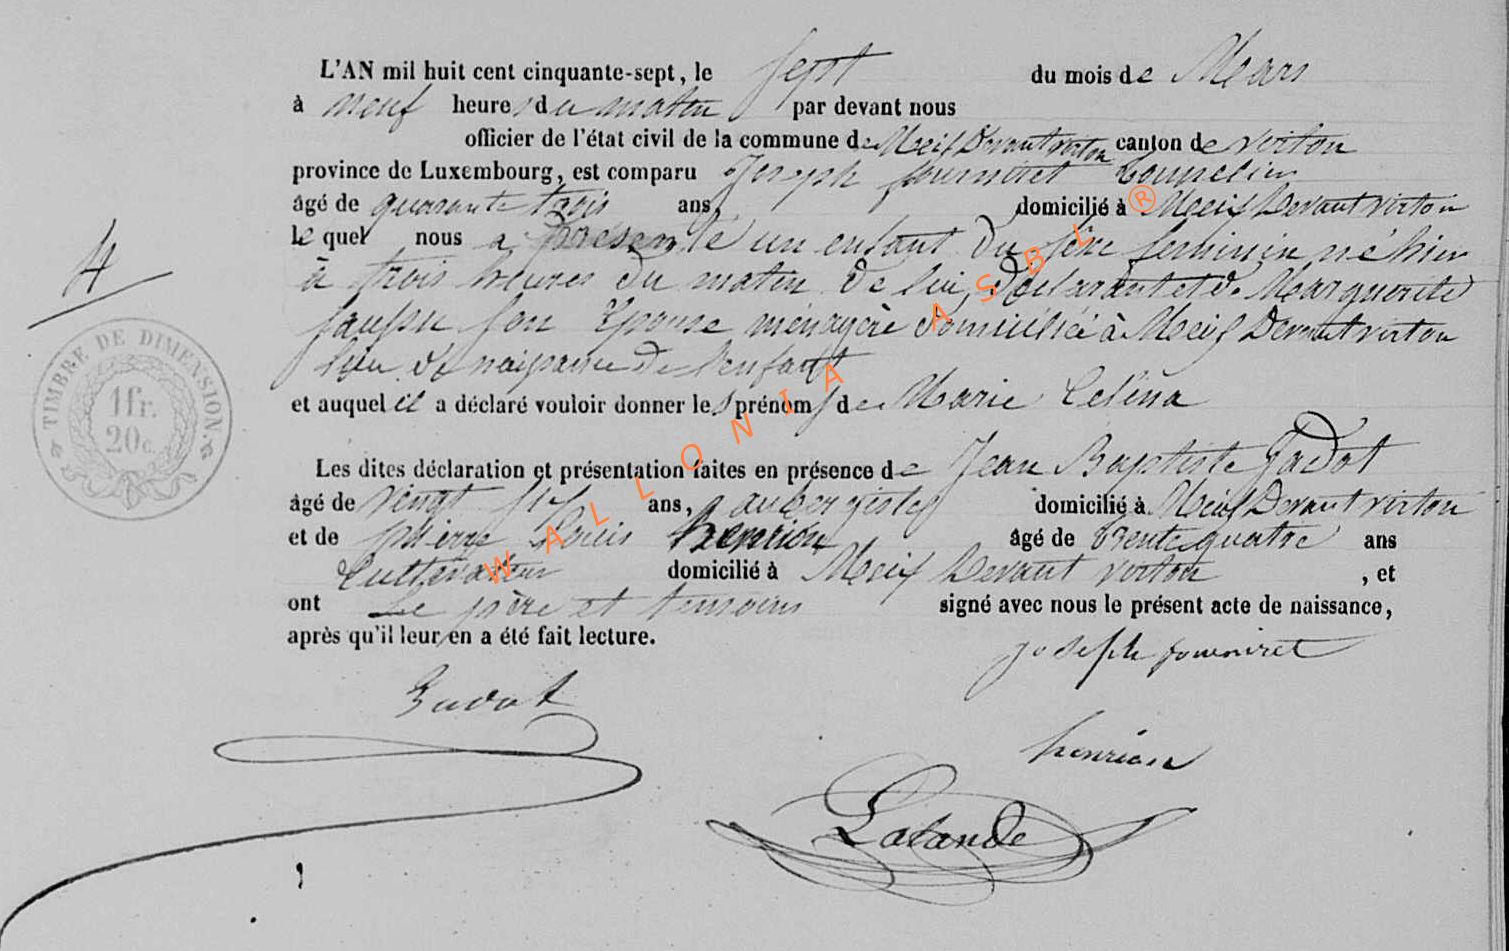 L'AN mil huit cent cinquante-sept, le sept du mois de Mars
à neuf heures du matin par devant nous
officier de l'état civil de la commune de Meix Devant virton canton de virton
province de Luxembourg, est comparu Joseph fourniret tonnelier
âgé de quarante trois ans, domicilié à Meix Devant virton
le quel nous a présenté un enfant du sexe feminin né hier
à trois heures du matin de lui déclarant et de Marguerite
son Epouse ménagère domiciliée à Meix Devant virton
lieu de naissance de l'enfant
et auquel il a déclaré vouloir donner les prénoms de Marie Celina
4
TIMBRE DE DIMENSION.
1 fr.
20 c.
Les dites déclaration et présentation faites en présence de Jean Baptiste Gadot
âgé de vingt ans, aubergiste domicilié à Meix Devant virton
et de pierre Louis henrion âgé de trente quatre ans
Cultivateur domicilié à Meix Devant virton , et
ont Le père et temoins signé avec nous le présent acte de naissance,
après qu'il leur en a été fait lecture.
joseph fourniret
Gadot
henrion
Lalande
WALLONIA ASBL ®